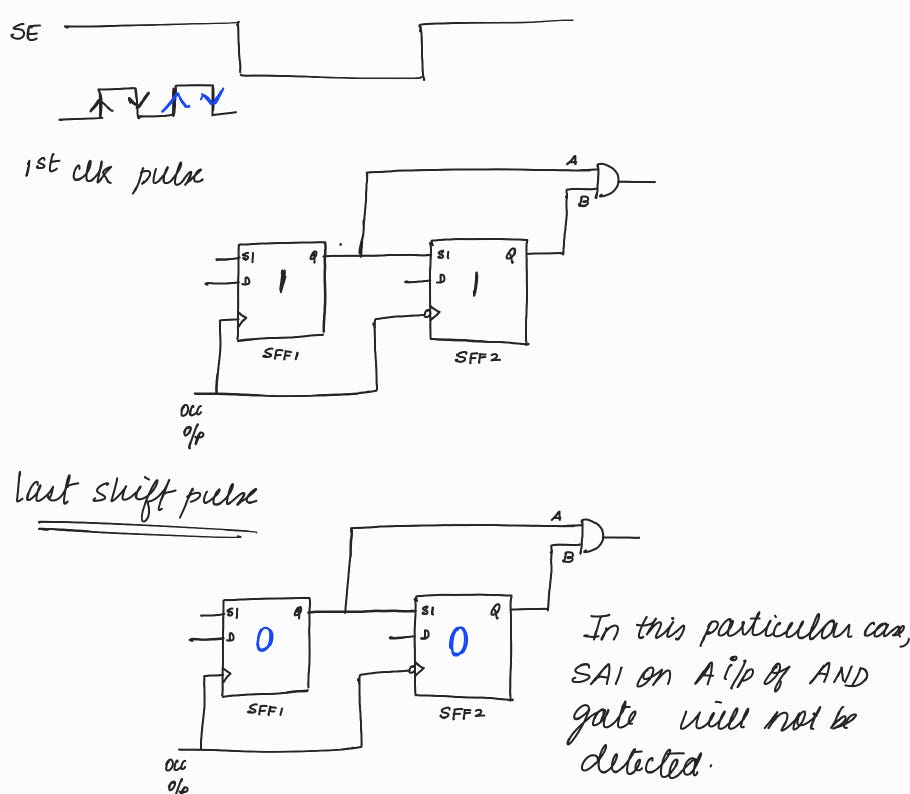 SE
1st clk pulse
A
B
SI Q
D
1
SFF1
SI Q
D
1
SFF2
OCC
O/P
last shift pulse
A
B
SI Q
D
0
SFF1
SI Q
D
0
SFF2
OCC
O/P
In this particular case,
SA1 on A i/p of AND
gate will not be
detected.